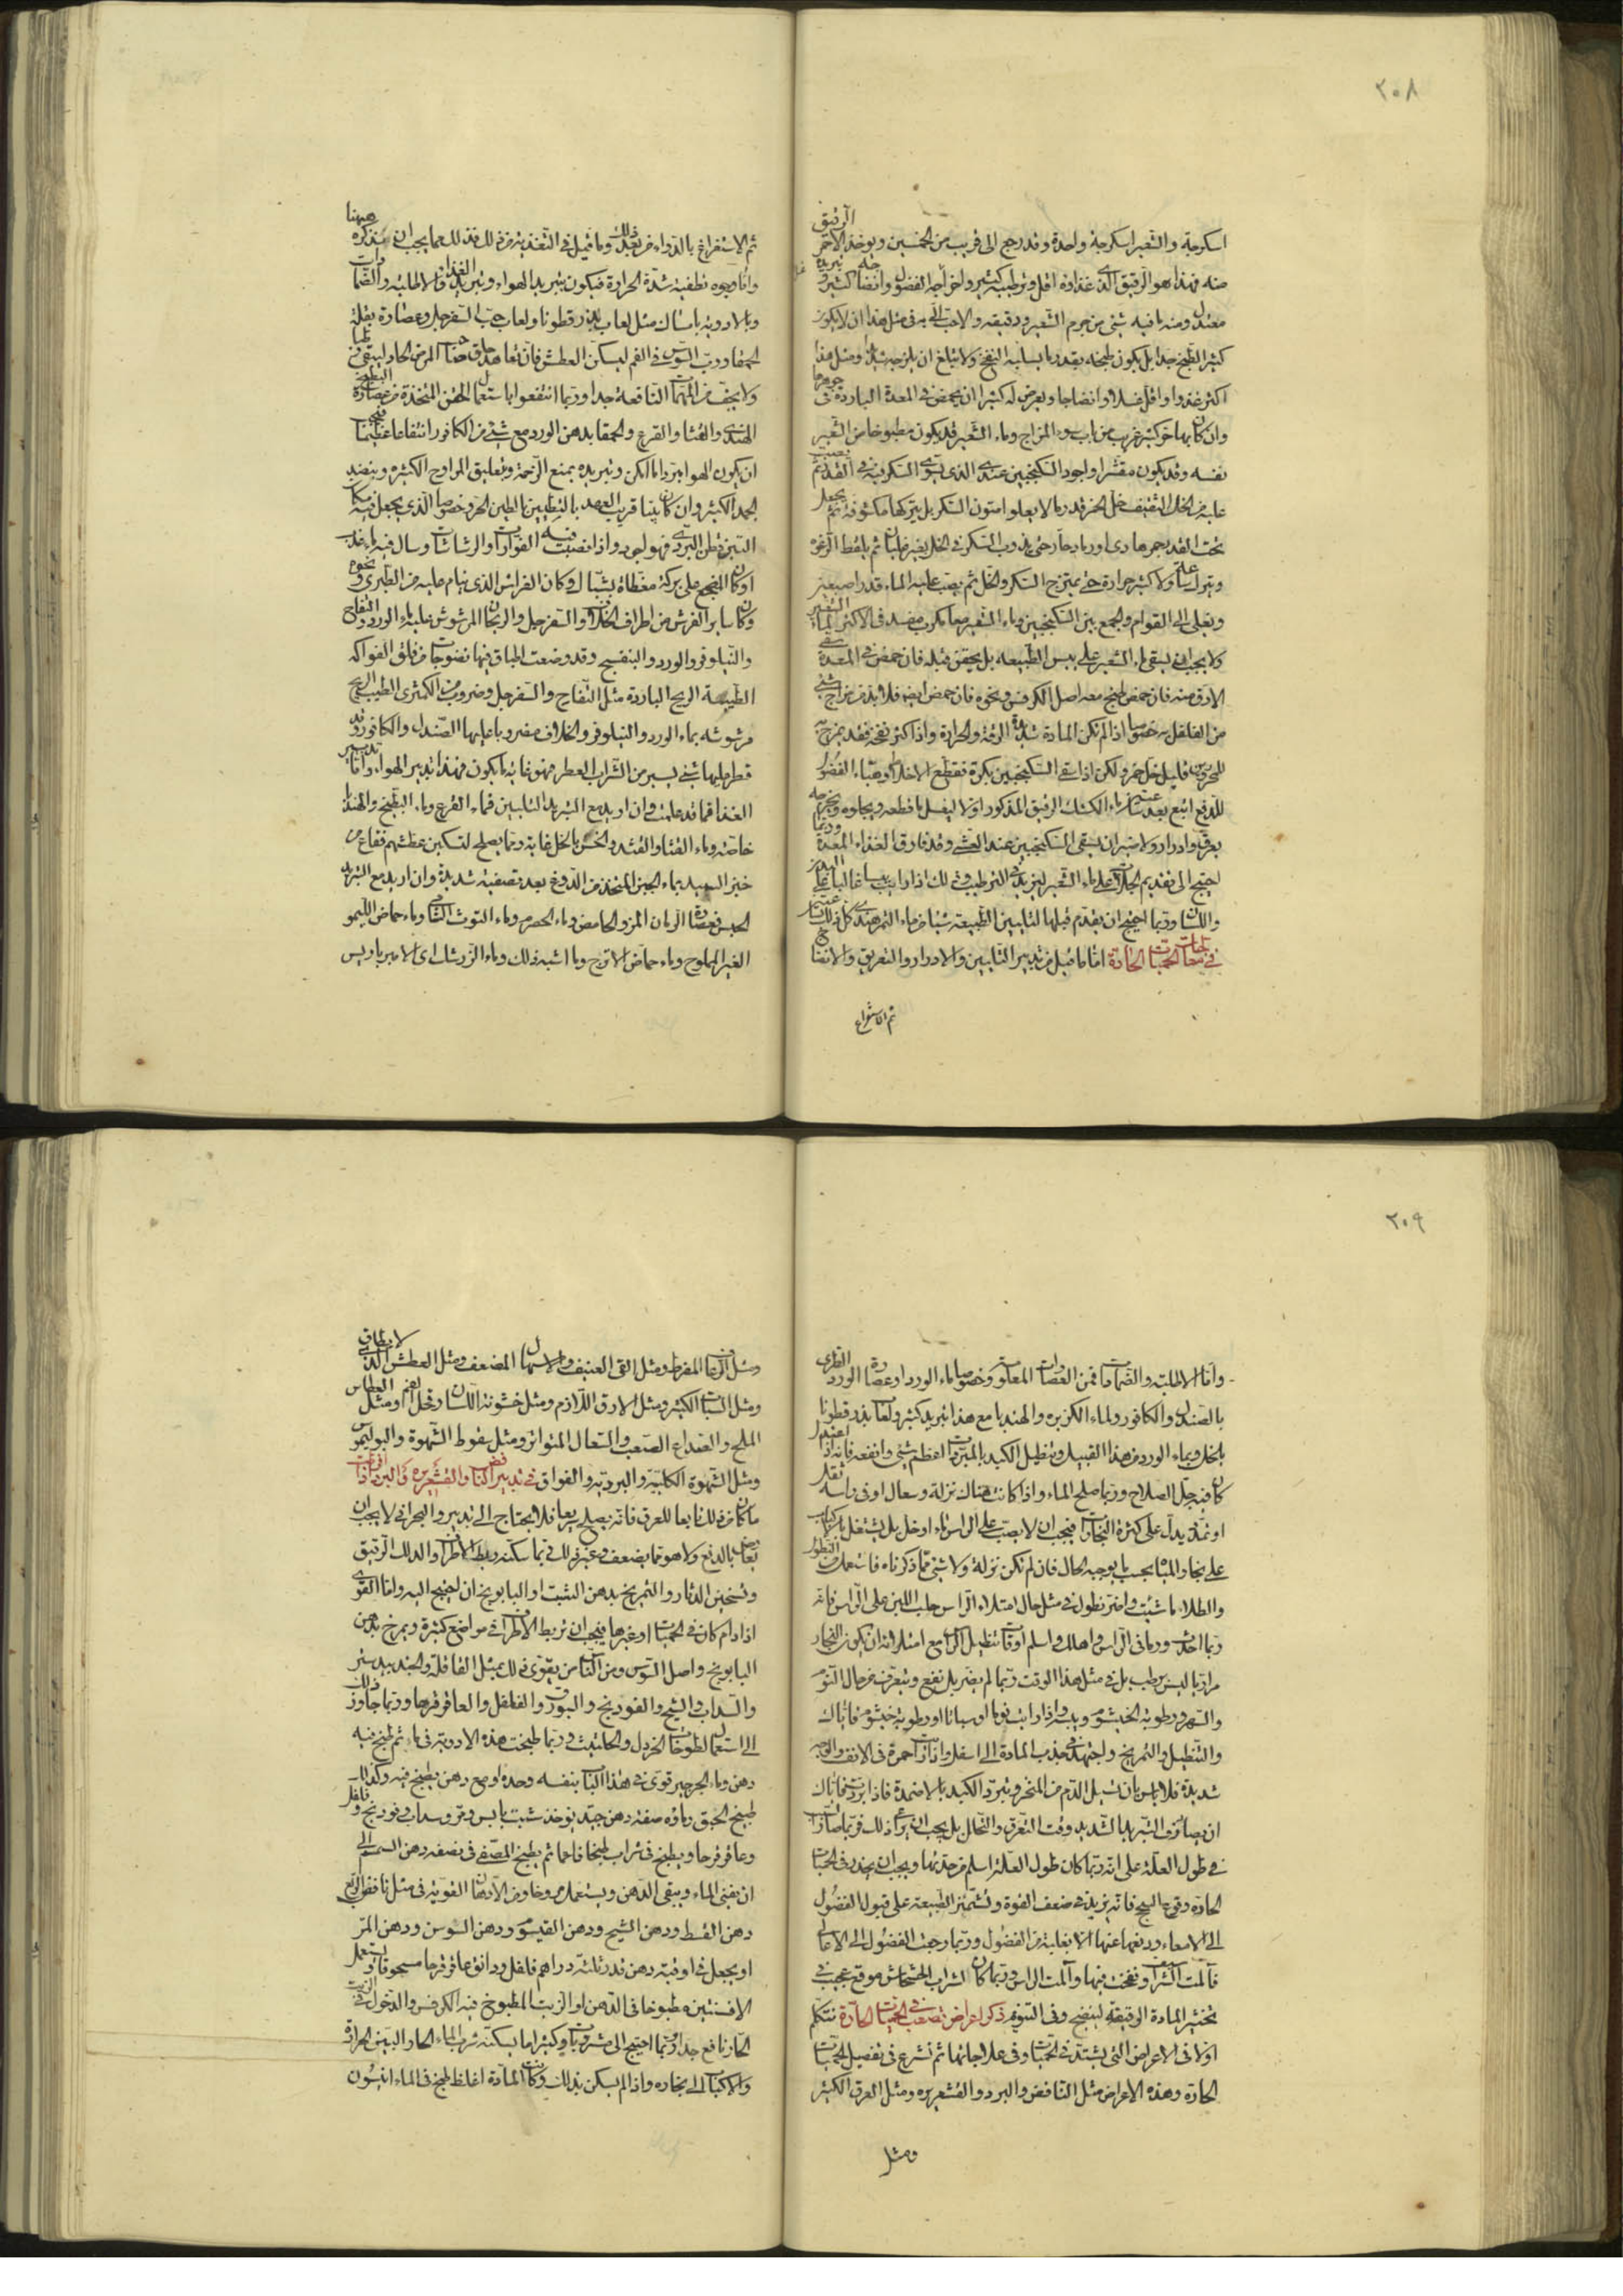 ٢٠٨
اسكرجة والشعير اسكرجة واحدة وقد رجع الى قريب من الخمسين ويوخذ الاحمر الرقيق
منه فهذا هو الرقيق الذى غذاوه اقل وترطيبه كثير واخراجه الفضول وانضاجه كثير وتبريده
معتدل ومنه ما فيه شئ من جرم الشعير ودقيقه والاحب الى فى مثل هذا ان لا يكون
كثير الطبخ جدا بل يكون طبخه بقدر ما يسلبه النفخ ولا يبلغ ان يلزجه شديدا ومثل هذا
اكثر غذوا واقل غسلا وانضاجا ويعرض له كثيرا ان يحمض فى المعدة الباردة فى جوهرها
وان كان بها حر كثير غريب من باب سوء المزاج وماء الشعير قد يكون مطبوخا من الشعير
نفسه وقد يكون مقشرا واجود السكنجبين عندى الذى يسوى السكر فيه فى القدر ثم يصب
عليه من الخل الثقيف خل الخمر قدر ما لا يعلو متون السكر بل يتركها مكشوفة ثم يجعل
تحت القدر جمر هادى او رماد حار حتى يذوب السكر فى الخل بغير غليان ثم يلقط الرغوة
ويترك ساعة ولا كثير حرارة حتى يمتزج السكر والخل ثم يصب عليه الماء قدر اصبعين
ويغلى الى القوام والجمع بين السكنجبين وماء الشعير معا مكرب مفسد فى الاكثر لماء الشعير
ولا يجب ان يسقى ماء الشعير على يبس الطبيعة بل يحقن قبله فان حمض فى المعدة سقى
الارق منه فان حمض طبخ معه اصل الكرفس ونحوه فان حمض ايضا فلا بد من مزاج شئ
من الفلفل به خصوصا اذا لم تكن المادة شديدة الرقة والحرارة واذا كثر نفخه فقد يمزج به
للمحرورين قليل خل خمر ولكن اذا سقى السكنجبين بكرة فقطع الاخلاط وهيأ الفضول
للدفع اتبع بعد ساعتين ماء الكشك الرقيق المذكور اولا ليغسل ما قطعه ويجلوه ويخرجه
بعرق وادرار ولا ضير ان يسقى السكنجبين عند العشى وقد فارق الغذاء المعدة وربما
احتيج الى تقديم الجلاب على ماء الشعير ليزيد فى الترطيب وذلك اذا رايت يبسا غالبا على البدن
واللسان وربما احتيج ان يقدم قبلها لتليين الطبيعة شيئا من ماء التمر هندى كل ذلك بساعتين
فى معالجات الحميات الحادة اما ما قيل من تدبير التليين والادرار والتعريق والانضاج
ثم الاستفراغ
ثم الاستفراغ بالدواء من بعد ذلك وما قيل فى التغذية من ذلك فذلك مما يجب ان تتذكره ههنا
واما وجوه تطفية شدة الحرارة فيكون بتبريد الهواء وتبريد الغذاء والاطلية والضمادات
وبالادوية بامساك مثل لعاب بذرقطونا ولعاب حب السفرجل وعصارة بقلة
الحمقا ورب السوس فى الفم ليسكن العطش فان تعاهد حلق صاحب المرض الحاد ليبقى رطبا
ولا يجف من المهمات النافعة جدا وربما انتفعوا باستعمال الحقن المتخذة من عصارة البطيخ
الهندى والقثا والقرع والحمقا بدهن الورد مع شئ من الكافور انتفاعا عظيما فيجب
ان يكون الهوا مبردا ما امكن وتبريده بمنع الزحمة وبتعليق المراوح الكثيرة وبتنضيد
الجمد الكثير وان كان بيتا قريب العهد بالتطيين بالطين الحر وخصوصا الذى يجعل فيه مكان
التبن قطن البردى فهو اجود واذا نصبت فيه الفوارات والرشاشات وسال فيه ماء عذب
او كان المضجع على بركة مغطاة بشباك وكان الفراش الذى ينام عليه من الطبرى ونحوه
وكان ساير الفرش من اطراف الخلاف والسفرجل والريحان المرشوش عليه ماء الورد والتفاح
والنيلوفر والورد والبنفسج وقد وضعت اطباق فيها نضوجات من فلق الفواكه
الطيبة الريح الباردة مثل التفاح والسفرجل وضروب من الكمثرى الطيب الريح
مرشوشه بماء الورد والنيلوفر والخلاف مفروبا عليها الصندل والكافور وقد
قطر عليها شئ يسير من الشراب العطر فهو غاية ما يكون فهذا تدبير الهواء واما تدبير
الغذا فما قد علمت وان اريد مع التبريد التليين فماء القرع وماء البطيخ والهندبا
خاصة وماء القثا والقثد والخس بالخل غاية ومما يصلح لتسكين عطشهم فقاع من
خبز السميد بماء الجبن المتخذ من الدوغ بعد تصفية شديدة وان اريد مع التبريد
الحبس فعصارة الرمان المز والحامض وماء الحصرم وماء التوت الشامى وماء حماض الليمو
الغير المملوح وماء حماض الاترج وما اشبه ذلك وماء الزرشك اى الامبرباريس
٢٠٩
واما الاطلية والضمادات فمن العصارات المعلومة وخصوصا ماء الورد او عصارة الورد الطرى
بالصندل والكافور وماء الكزبره والهندبا مع هذا تبريد كثير ولعاب بذرقطونا
بالخل وبماء الورد من هذا القبيل وتطيل الكبد بالمبردات اعظم شئ وانفعه فانه اذا اعتدل
كان فيه جل الصلاح وربما صلح الماء واذا كانت هناك نزلة وسعال او فى راسه ثقل
او تمدد يدل على كثرة البخارات فيجب ان لا يصب على الراس ماء او خل بل يشتغل بالاكباب
على بخار المياه بحسب ما يوجبه الحال فان لم تكن نزلة ولا شئ مما ذكرناه فاستعملت النطول
والطلاء ما شئت واضر نطول فى مثل حال امتلاء الراس حلب اللبن على الراس فانه
ربما احدث ورما فى الراس واهلك واسلم اوقات تنطيل الراس مع امتلائه ان يكون البخار
مراريا ليس برطب بل فى مثل هذا الوقت ربما لم يضر بل نفع وتتعرف من حال النوم
والسهر ورطوبة الخيشوم ويبسه واذا رايت نوما او سباتا او رطوبة خيشوم فاياك
والتنطيل والتمريخ واجتهد فى جذب المادة الى اسفل واذا رايت حمرة فى الانف والوجه
شديدة فلا باس بان تسيل الدم من المنخر وتبرد الكبد بالاضمدة فاذا بردت فاياك
ان يصادف التبريد الشديد وقت التعرق والتحلل بل يجب ان يراعى ذلك فربما صار
فى طول العلة على انه ربما كان طول العلة اسلم من حدتها ويجب ان يحذر فى الحميات
الحاده وقوع السحج فانه يزيد فى ضعف القوة وتشمئز الطبيعة على قبول الفضول
الى الامعاء ودفعها عنها الا بغلبة من الفضول وربما رجعت الفضول الى الاعالى
فآلمت الشراسيف ونفخت فيها وآلمت الراس وربما كان لشراب الخشخاش موقع عجيب فى
تخثير المادة الرقيقة لينضج وفى التنويم ذكر اعراض تصعب فى الحميات الحادة نتكلم
اولا فى الاعراض التى تشتد فى الحميات وفى علاجاتها ثم نشرع فى تفصيل الحميات
الحادة وهذه الاعراض مثل النافض والبرد والقشعريره ومثل العرق الكثير
ومثل
ومثل الرعاف المفرط ومثل القى العنيف والاسهال المضعف ومثل العطش الذى لا يطاق
ومثل السبات الكثير ومثل الارق اللازم ومثل خشونة اللسان وقحل الفم ومثل العطاس
الملح والصداع الصعب والسعال المتواتر ومثل سقوط الشهوة والبوليموس
ومثل الشهوة الكلبية والبرديه والفواق فى تدبير النافض والقشعريره والبرد اذا افرطت
ما كان من ذلك تابعا للعرق فانه يصلح سريعا فلا يحتاج الى تدبير والبحرانى لا يجب ان
يعارض بالدفع ولا هو مما يضعف وغير ذلك فمما يسكنه ربط الاطراف والدلك الرقيق
وتسخين الدثار والتمريخ بدهن الشبت او البابونج ان احتيج اليه واما القوى
اذا دام كان فى الحميات او غيرها فيجب ان تربط الاطراف فى مواضع كثيرة ويمرخ بدهن
البابونج واصل السوس ومن الناس من يقوى ذلك بمثل القاقلة والجندبيدستر
والسداب والشيح والفودنج والبورق والفلفل والعاقرقرحا وربما جاوز ذلك
الى استعمال لطوخات الخردل والحلتيت وربما طبخت هذه الادوية فى ماء ثم طبخ فيه
دهن وماء الجرجير قوى فى هذا الباب بنفسه وحده او مع دهن يطبخ فيه وكذلك
طبيخ الحبق وماؤه صفة دهن جيد يوخذ شبت يابس ومر وسداب وفودنج وفلفل
وعاقرقرحا ويطبخ فى شراب طبخا ناعما ثم يطبخ المصفى فى نصفه دهن السمسم الى
ان يفنى الماء ويبقى الدهن ويستعمل مروخا ومن الادهان القوية فى مثل نافض الربع
دهن القسط ودهن الشيح ودهن القيسوم ودهن السوسن ودهن المر
او يجعل فى اوقية دهن قدر ثلثة دراهم فلفل ودانق عاقرقرحا مسحوقا ويستعمل
الافسنتين مطبوخا فى الدهن او الزيت المطبوخ فيه الكرفس والدخول فى الزيت
الحار نافع جدا وربما احتيج الى مشروبات وكثيرا ما يسكنه شرب الماء الحار البين الحرارة
والاكباب الى بخاره واذا لم يسكن بذلك وكانت المادة اغلظ طبخ فى الماء انيسون